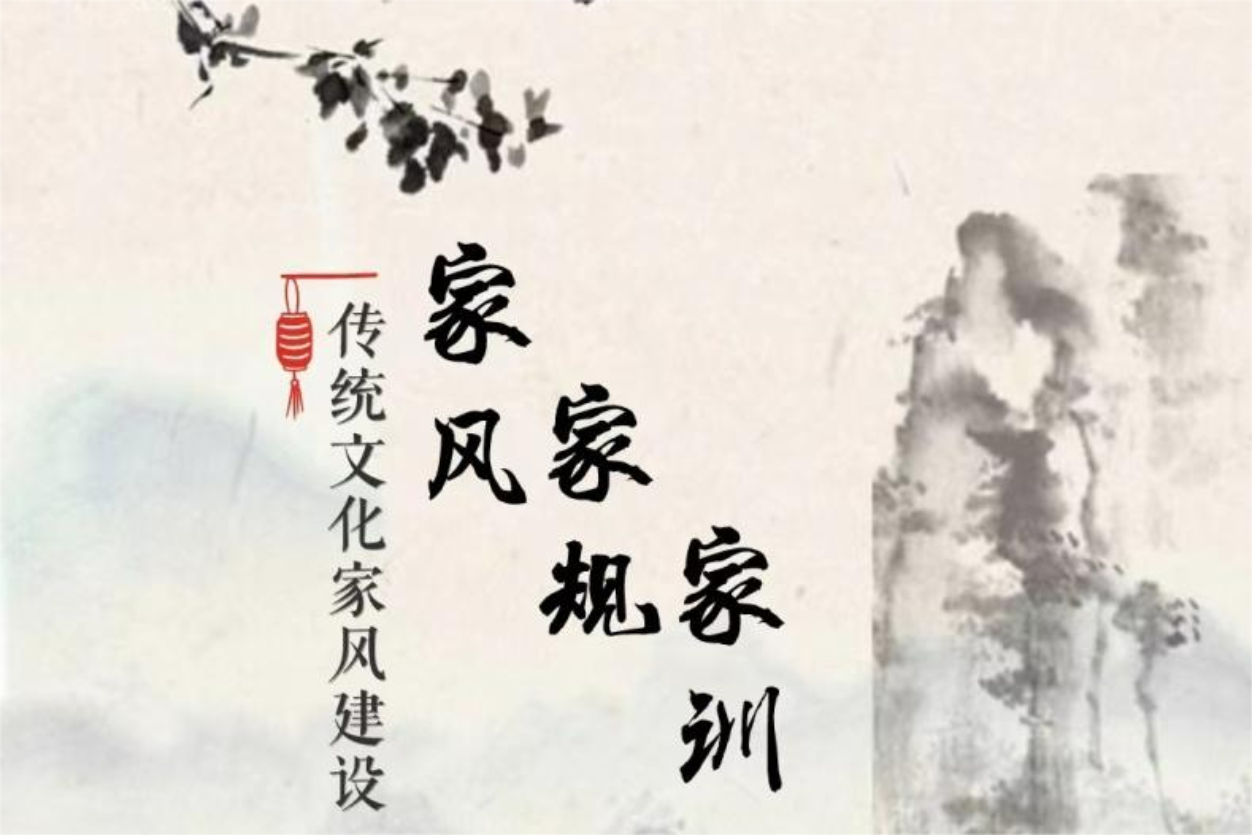 传统文化家风建设
家风
家规
家训